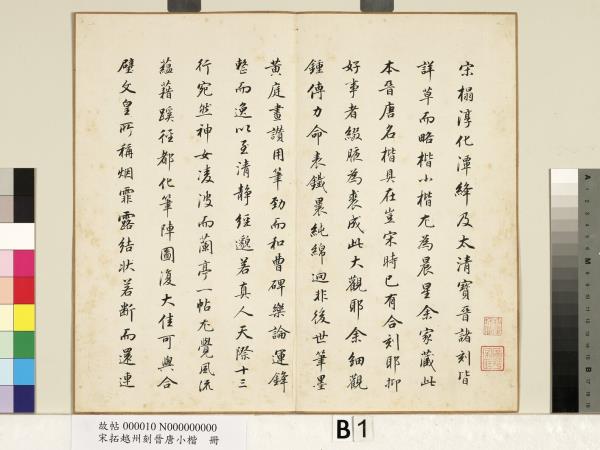 宋榻淳化潭絳及太清寶晉諸刻皆
詳草而略楷小楷尤為晨星余家藏此
本晉唐名楷具在豈宋時已有合刻耶抑
好事者綴腋為裘成此大觀耶余細觀
鍾傅力命表鐵裹純綿迥非後世筆墨
黃庭畫讚用筆勁而和曹碑樂論運鋒
整而逸以至清靜經邈若真人天際十三
行宛然神女凌波而蘭亭一帖尤覺風流
蘊藉蹊徑都化筆陣圖復大佳可與合
璧文皇所稱烟霏露結狀若斷而還連
故帖 000010 N000000000
宋拓越州刻晉唐小楷 冊
B1
A
B